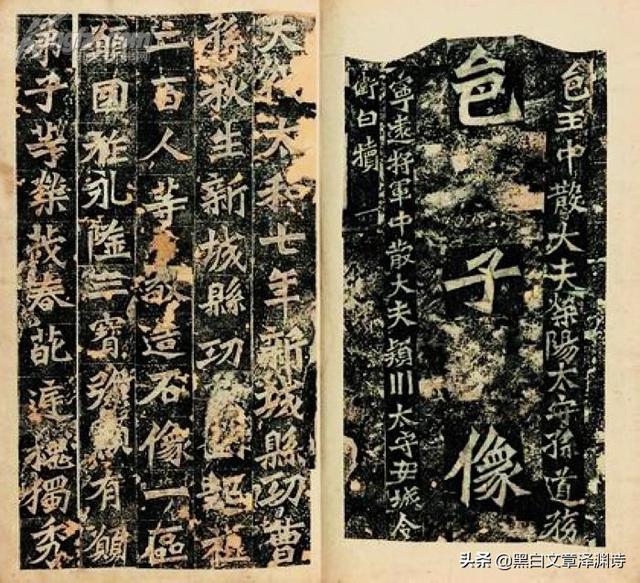 邑主中散大夫滎陽太守孫道務
邑子像
寧遠將軍中散大夫潁川太守安城令
衛白犢
大代太和七年新城縣功曹
孫秋生新城縣功曹劉起祖
二百人等敬造石像一區
願國祚永隆三寶彌顯有願
弟子等榮茂春葩庭槐獨秀
头条 @黑白文章泽渊诗